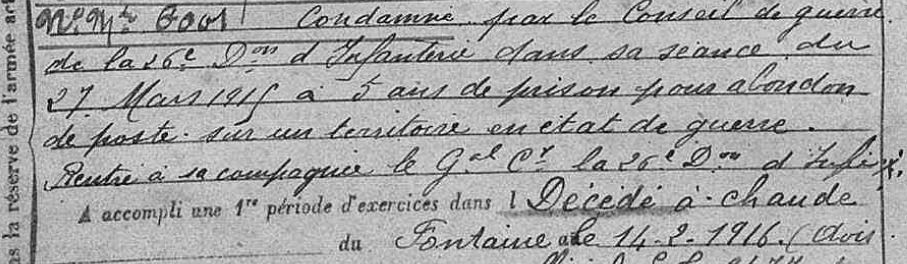 Nº Mle Condamné par le Conseil de guerre
de la 26e Don d'Infanterie dans sa séance du
27 Mars 1915 à 5 ans de prison pour abandon
de poste sur un territoire en état de guerre.
Rentré à sa compagnie le Gal Ct la 26e Don d'Infie
A accompli une 1re période d'exercices dans l Décédé à chaude
du Fontaine le 14-2-1916. (avis
as la réserve de l'armée